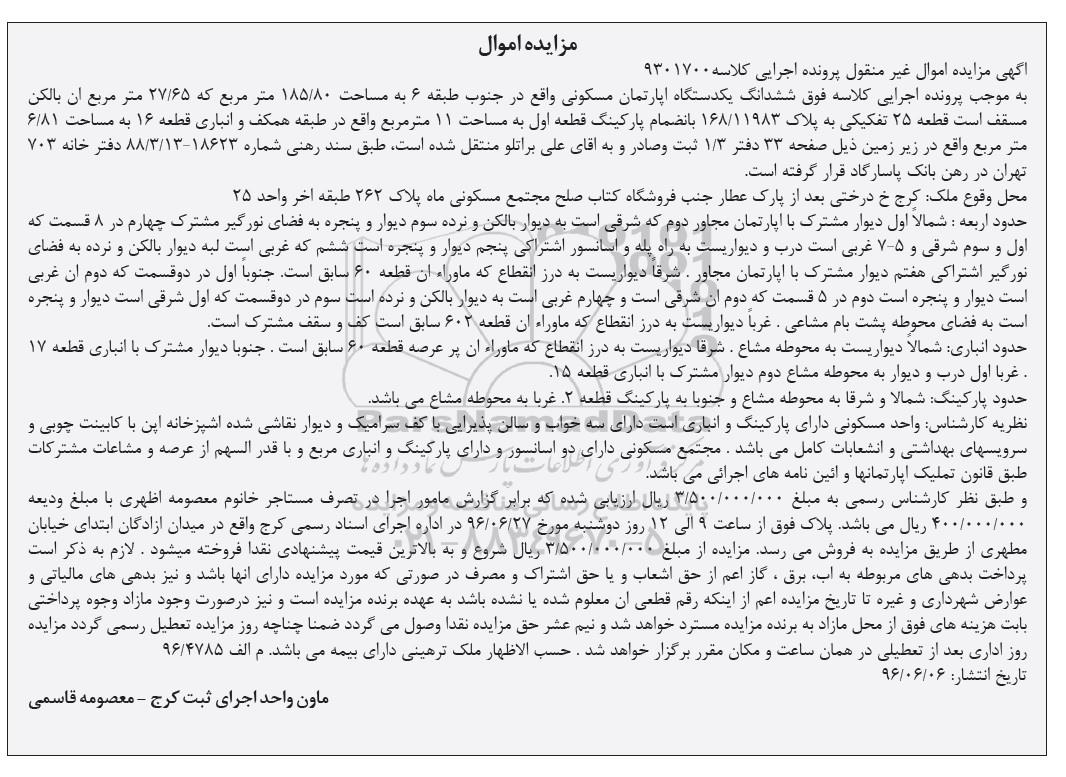 مزایده اموال
اگهی مزایده اموال غیر منقول پرونده اجرایی کلاسه۹۳۰۱۷۰۰
به موجب پرونده اجرایی کلاسه فوق ششدانگ یکدستگاه اپارتمان مسکونی واقع در جنوب طبقه ۶ به مساحت ۱۸۵/۸۰ متر مربع که ۲۷/۶۵ متر مربع ان بالکن
مسقف است قطعه ۲۵ تفکیکی به پلاک ۱۶۸/۱۱۹۸۳ بانضمام پارکینگ قطعه اول به مساحت ۱۱ مترمربع واقع در طبقه همکف و انباری قطعه ۱۶ به مساحت ۶/۸۱
متر مربع واقع در زیر زمین ذیل صفحه ۳۳ دفتر ۱/۳ ثبت وصادر و به اقای علی براتلو منتقل شده است، طبق سند رهنی شماره ۱۸۶۲۳-۸۸/۳/۱۳ دفتر خانه ۷۰۳
تهران در رهن بانک پاسارگاد قرار گرفته است.
محل وقوع ملک: کرج خ درختی بعد از پارک عطار جنب فروشگاه کتاب صلح مجتمع مسکونی ماه پلاک ۲۶۲ طبقه اخر واحد ۲۵
حدود اربعه : شمالاً اول دیوار مشترک با اپارتمان مجاور دوم که شرقی است به دیوار بالکن و نرده سوم دیوار و پنجره به فضای نورگیر مشترک چهارم در ۸ قسمت که
اول و سوم شرقی و ۵-۷ غربی است درب و دیواریست به راه پله و اسانسور اشتراکی پنجم دیوار و پنجره است ششم که غربی است لبه دیوار بالکن و نرده به فضای
نورگیر اشتراکی هفتم دیوار مشترک با اپارتمان مجاور . شرقاً دیواریست به درز انقطاع که ماوراء ان قطعه ۶۰ سابق است. جنوباً اول در دوقسمت که دوم ان غربی
است دیوار و پنجره است دوم در ۵ قسمت که دوم ان شرقی است و چهارم غربی است به دیوار بالکن و نرده است سوم در دوقسمت که اول شرقی است دیوار و پنجره
است به فضای محوطه پشت بام مشاعی . غرباً دیواریست به درز انقطاع که ماوراء ان قطعه ۶۰۲ سابق است کف و سقف مشترک است.
حدود انباری: شمالاً دیواریست به محوطه مشاع . شرقا دیواریست به درز انقطاع که ماوراء ان پر عرصه قطعه ۶۰ سابق است . جنوبا دیوار مشترک با انباری قطعه ۱۷
. غربا اول درب و دیوار به محوطه مشاع دوم دیوار مشترک با انباری قطعه ۱۵.
حدود پارکینگ: شمالا و شرقا به محوطه مشاع و جنوبا به پارکینگ قطعه ۲. غربا به محوطه مشاع می باشد.
نظریه کارشناس: واحد مسکونی دارای پارکینگ و انباری است دارای سه خواب و سالن پذیرایی با کف سرامیک و دیوار نقاشی شده اشپزخانه اپن با کابینت چوبی و
سرویسهای بهداشتی و انشعابات کامل می باشد . مجتمع مسکونی دارای دو اسانسور و دارای پارکینگ و انباری مربع و با قدر السهم از عرصه و مشاعات مشترکات
طبق قانون تملیک اپارتمانها و ائین نامه های اجرائی می باشد.
و طبق نظر کارشناس رسمی به مبلغ ۳/۵۰۰/۰۰۰/۰۰۰ ریال ارزیابی شده که برابر گزارش مامور اجرا در تصرف مستاجر خانوم معصومه اظهری با مبلغ ودیعه
۴۰۰/۰۰۰/۰۰۰ ریال می باشد. پلاک فوق از ساعت ۹ الی ۱۲ روز دوشنبه مورخ ۹۶/۰۶/۲۷ در اداره اجرای اسناد رسمی کرج واقع در میدان ازادگان ابتدای خیابان
مطهری از طریق مزایده به فروش می رسد. مزایده از مبلغ ۳/۵۰۰/۰۰۰/۰۰۰ ریال شروع و به بالاترین قیمت پیشنهادی نقدا فروخته میشود . لازم به ذکر است
پرداخت بدهی های مربوطه به اب، برق ، گاز اعم از حق اشعاب و یا حق اشتراک و مصرف در صورتی که مورد مزایده دارای انها باشد و نیز بدهی های مالیاتی و
عوارض شهرداری و غیره تا تاریخ مزایده اعم از اینکه رقم قطعی ان معلوم شده یا نشده باشد به عهده برنده مزایده است و نیز درصورت وجود مازاد وجوه پرداختی
بابت هزینه های فوق از محل مازاد به برنده مزایده مسترد خواهد شد و نیم عشر حق مزایده نقدا وصول می گردد ضمنا چناچه روز مزایده تعطیل رسمی گردد مزایده
روز اداری بعد از تعطیلی در همان ساعت و مکان مقرر برگزار خواهد شد . حسب الاظهار ملک ترهینی دارای بیمه می باشد. م الف ۹۶/۴۷۸۵
تاریخ انتشار: ۹۶/۰۶/۰۶
ماون واحد اجرای ثبت کرج - معصومه قاسمی
ParsNamadData
۰۲۱-۸۸۳۴۹۶۷۰-۵